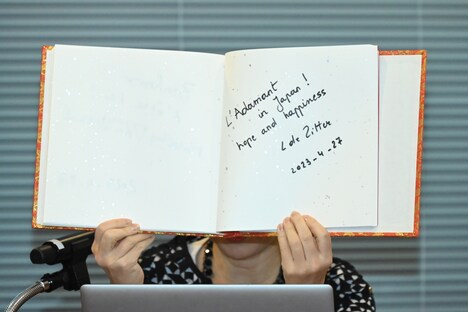 L'Adamant
in Japan!
hope and happiness
Lde Zitter
2023-4-27